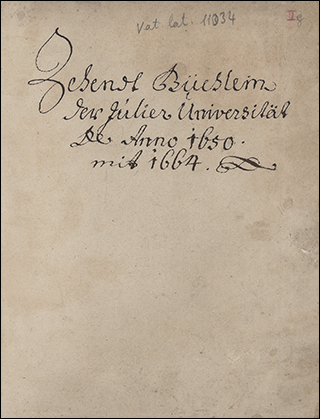 Vat. lat. 11034
Zehendt Büchlein
der Julier Universität
de Anno 1650.
mit 1664.